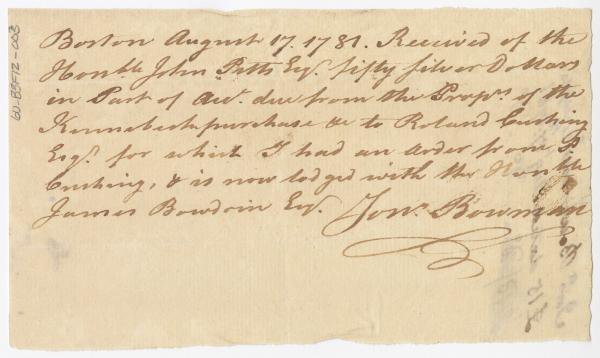 Boston August 17. 1781. Received of the
Honble John Pitts Esqr. fifty silver Dollars
in Part of Acct. due from the Proprs. of the
Kennebeck purchase &c to Roland Cushing
Esqr. for which I had an order from sd.
Cushing, & is now lodged with the Honble
James Bowdoin Esqr. Jonn. Bowman